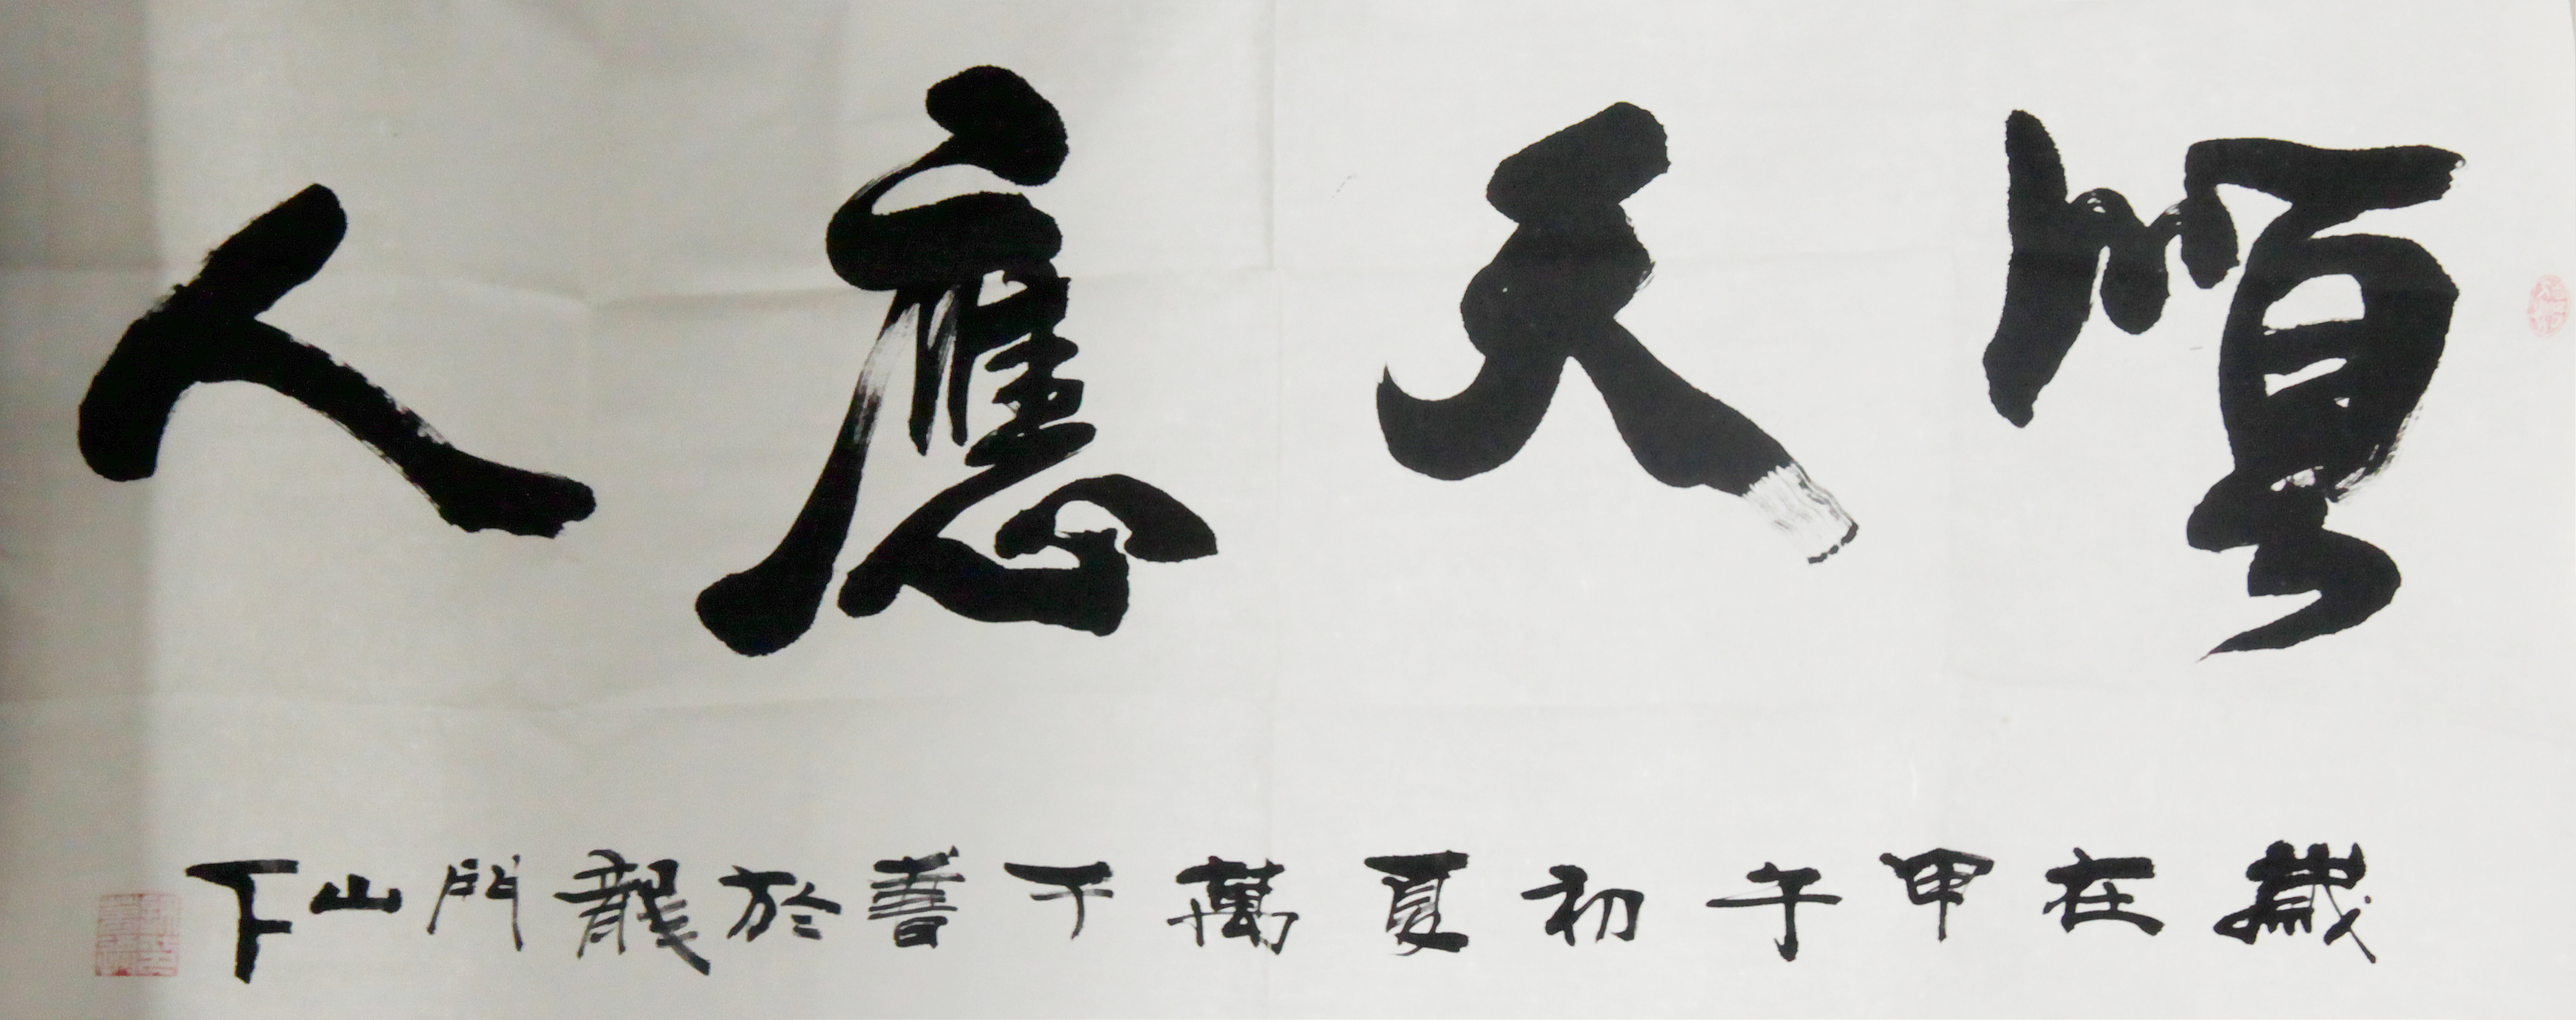 順天應人
歲在甲午初夏萬于書於龍門山下